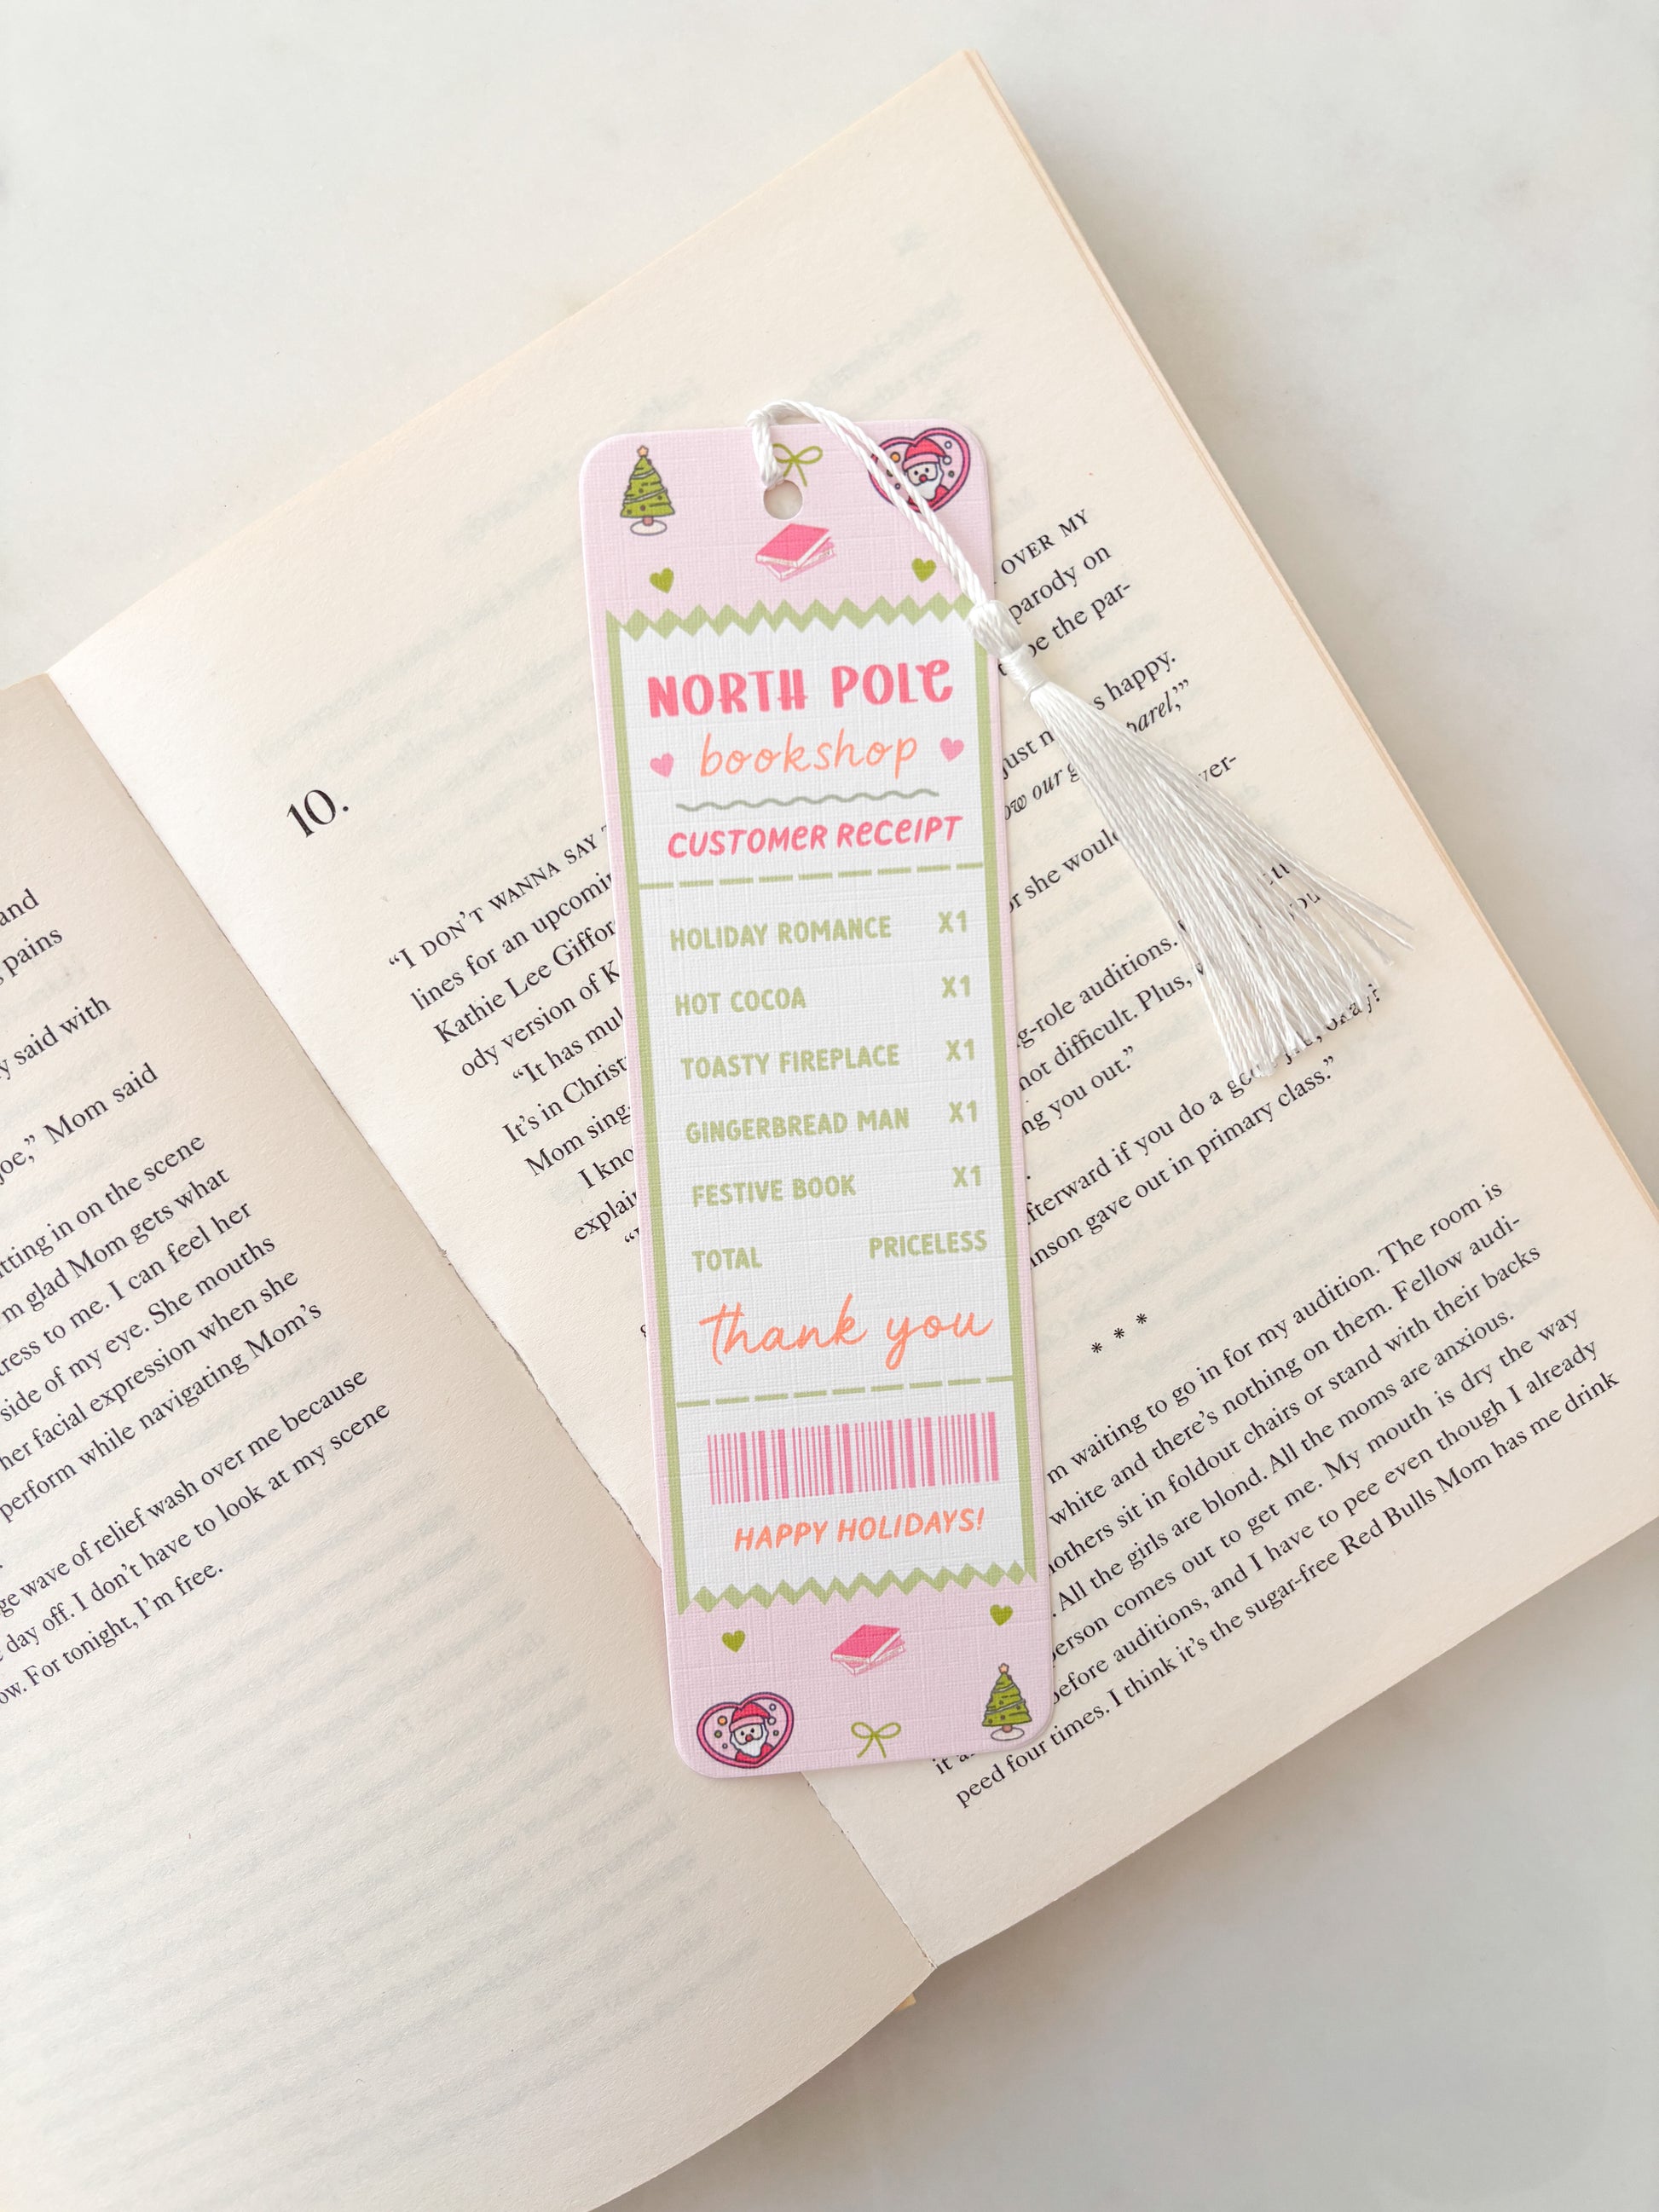 and
pains
said with
joe,” Mom said
tting in on the scene
m glad Mom gets what
ress to me. I can feel her
side of my eye. She mouths
her facial expression when she
perform while navigating Mom’s
ge wave of relief wash over me because
day off. I don’t have to look at my scene
ow. For tonight, I’m free.
10.
“I DON’T WANNA SAY
lines for an upcomin
Kathie Lee Giffor
ody version of K
“It has mul
It’s in Christ
Mom sing-
I kno
explai
NORTH POLE
bookshop
CUSTOMER RECEIPT
HOLIDAY ROMANCE X1
HOT COCOA X1
TOASTY FIREPLACE X1
GINGERBREAD MAN X1
FESTIVE BOOK X1
TOTAL PRICELESS
thank you
HAPPY HOLIDAYS!
OVER MY
parody on
be the par-
s happy.
just n parel,’”
ow our g
ver-
or she would
g-role auditions.
not difficult. Plus,
ng you out.”
fterward if you do a good job, okay?
nson gave out in primary class.”
* * *
m waiting to go in for my audition. The room is
white and there’s nothing on them. Fellow audi-
others sit in foldout chairs or stand with their backs
. All the girls are blond. All the moms are anxious.
erson comes out to get me. My mouth is dry the way
before auditions, and I have to pee even though I already
peed four times. I think it’s the sugar-free Red Bulls Mom has me drink